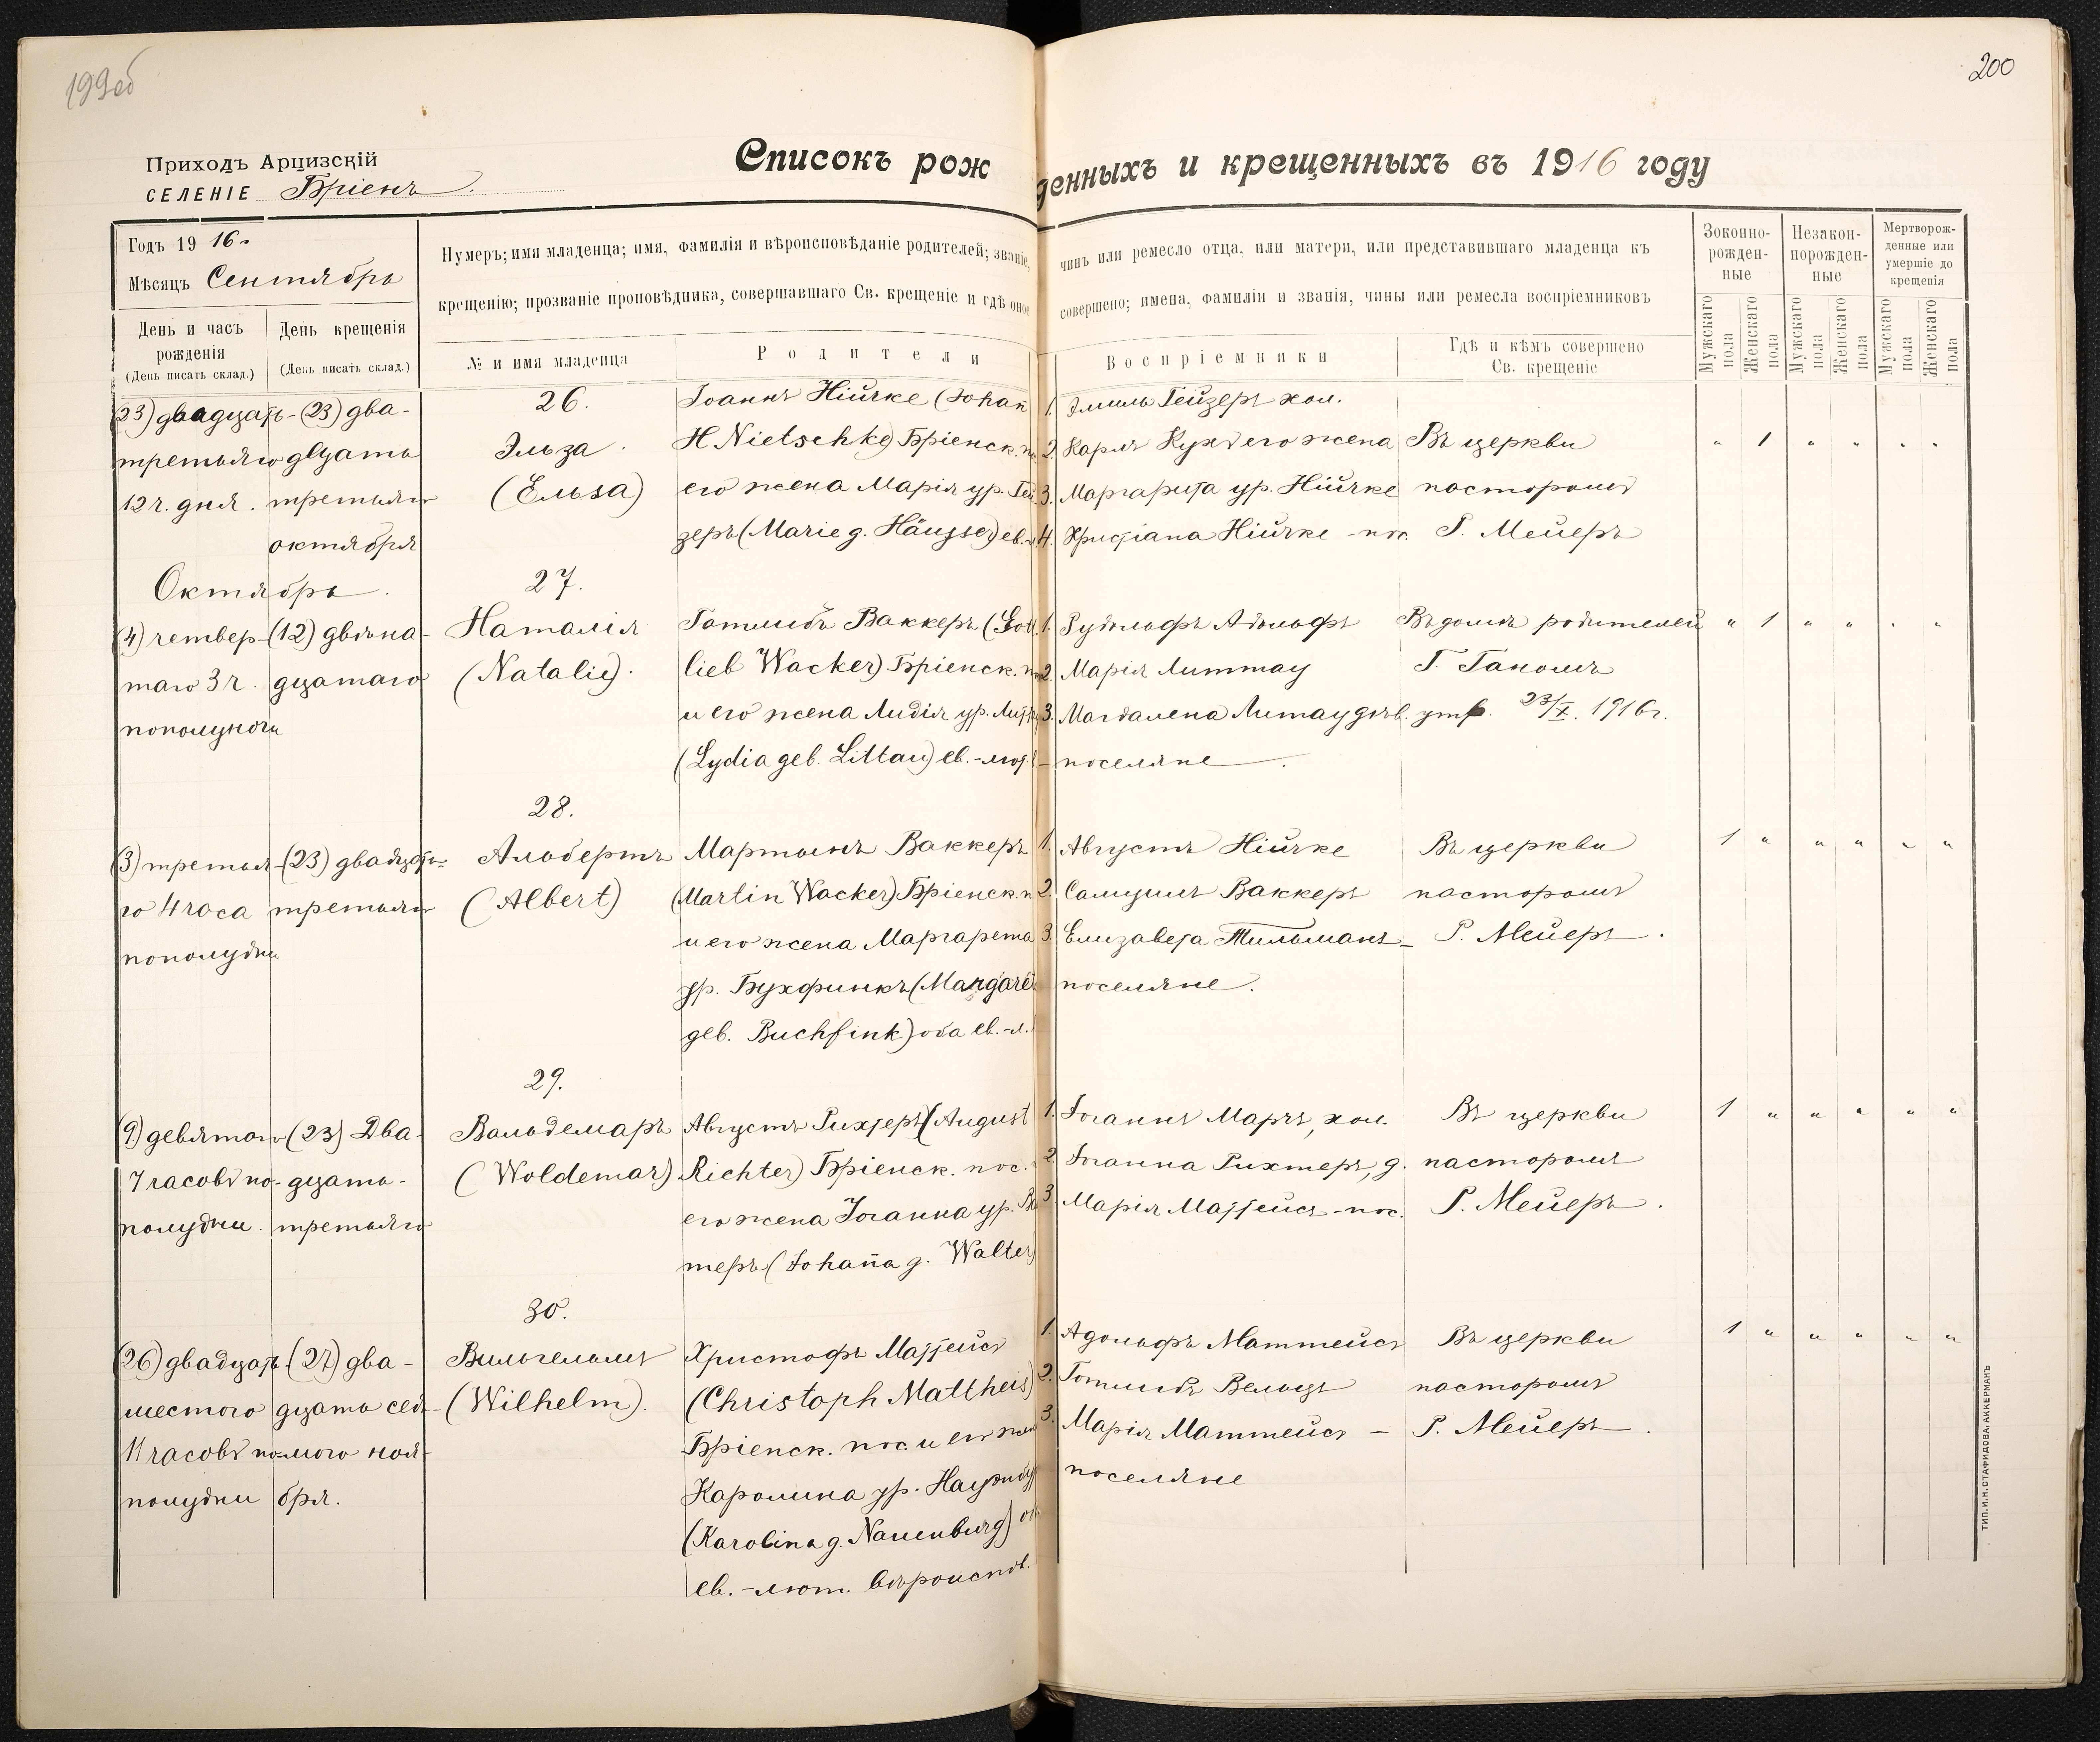 199об
200
Приходъ Арцизскій
СЕЛЕНІЕ Бріенъ
Списокъ рож
денныхъ и крещенныхъ въ 1916 году
Годъ 19 16.
Мѣсяцъ Сентябрь
День и часъ рожденія
(День писать склад.)
День крещенія
(День писать склад.)
Нумеръ; имя младенца; имя, фамилія и вѣроисповѣданіе родителей; званіе,
крещенію; прозваніе проповѣдника, совершавшаго Св. крещеніе и гдѣ оное
№ и имя младенца
Родители
чинъ или ремесло отца, или матери, или представившаго младенца къ
совершено; имена, фамиліи и званія, чины или ремесла воспріемниковъ
Воспріемники
Гдѣ и кѣмъ совершено
Св. крещеніе
Зоконно-
рожден-
ные
Незакон-
норожден-
ные
Мертворож-
денные или
умершіе до
крещенія
Мужскаго пола
Женскаго пола
Мужскаго пола
Женскаго пола
Мужскаго пола
Женскаго пола
(23) двадцать-
третьяго
12 ч. дня.
(23) два-
дцать
третьяго
октября
26.
Эльза
(Ельsа)
Іоаннъ Нійчке (Johan̄
Nietschke) Бріенск.
его жена Марія ур. Гей
зеръ (Marie g. Häusser) ев.
1. Эмиль Гейзеръ хол.
2. Карлъ Кухъ его жена
3. Маргарита ур. Нійчке
4. Христіана Нійчке - пос.
Въ церкви
пасторомъ
Г. Мейеръ
" 1 " " " "
Октябрь.
(4) четвер-
таго 3 ч.
пополуночи
(12) двѣна-
дцатаго
27.
Наталія
(Natalie).
Готлибъ Ваккеръ (Gott
lieb Wacker) Бріенск.
и его жена Лидія ур.
(Lydia geb. Littau) ев.-лют.
1. Рудольфъ Адольфъ
2. Марія Литтау
3. Магдалена Литау дѣв.
- поселяне
Въ домѣ родителей
Г. Ганомъ
утв. 23/X. 1916 г.
" 1 " " " "
(3) третья-
го 4 часа
пополудни
(23) двадцать-
третьяго
28.
Альбертъ
(Albert)
Мартынъ Ваккеръ
(Martin Wacker) Бріенск. п
и его жена Маргарета
ур. Бухфинкъ (Margare
geb. Buchfink) оба ев.-л.
1. Августъ Нійчке
2. Самуилъ Ваккеръ
3. Елизавета Тильманъ -
поселяне.
Въ церкви
пасторомъ
Г. Мейеръ.
1 " " " " "
(9) девятого
7 часовъ по-
полудни.
(23) Два-
дцать-
третьяго
29.
Вольдемаръ
(Woldemar)
Августъ Рихтеръ (August
Richter) Бріенск. пос.
его жена Іоганна ур. Ва
теръ (Johan̄a g. Walter)
1. Іоганнъ Марчъ, хол.
2. Іоганна Рихтеръ, д.
3. Марія Маттейсъ - пос.
Въ церкви
пасторомъ
Г. Мейеръ.
1 " " " " "
(26) двадцать
шестого
11 часовъ по-
полудни
(27) два-
дцать седь-
мого ноя-
бря.
30.
Вильгельмъ
(Wilhelm).
Христофъ Маттейсъ
(Christoph Mattheis)
Бріенск. пос. и его жена
Каролина ур.
(Karolina g. Nauenburg)
ев.-лют. вѣроиспов.
1. Адольфъ Маттейсъ
2. Готлибъ Вельцъ
3. Марія Маттейсъ -
поселяне
Въ церкви
пасторомъ
Г. Мейеръ.
1 " " " " "
ТИП. И.Н. СТАФИДОВА. АККЕРМАНЪ